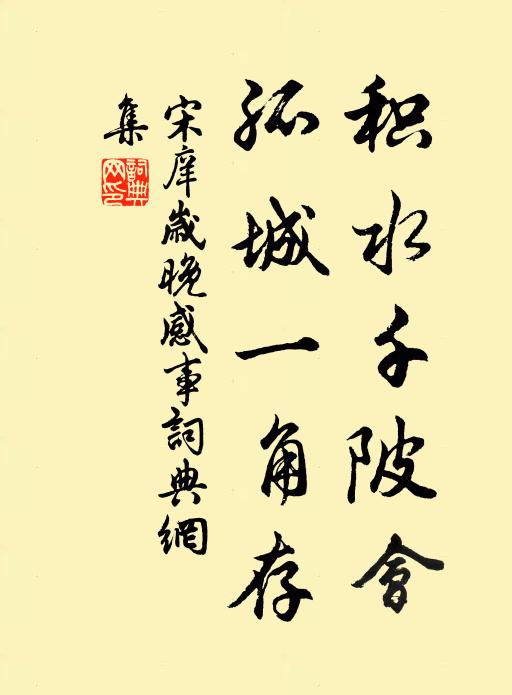 积水千陂會
孤城一角存
宋庠歲晚感事詞典網
集
詞典
网印